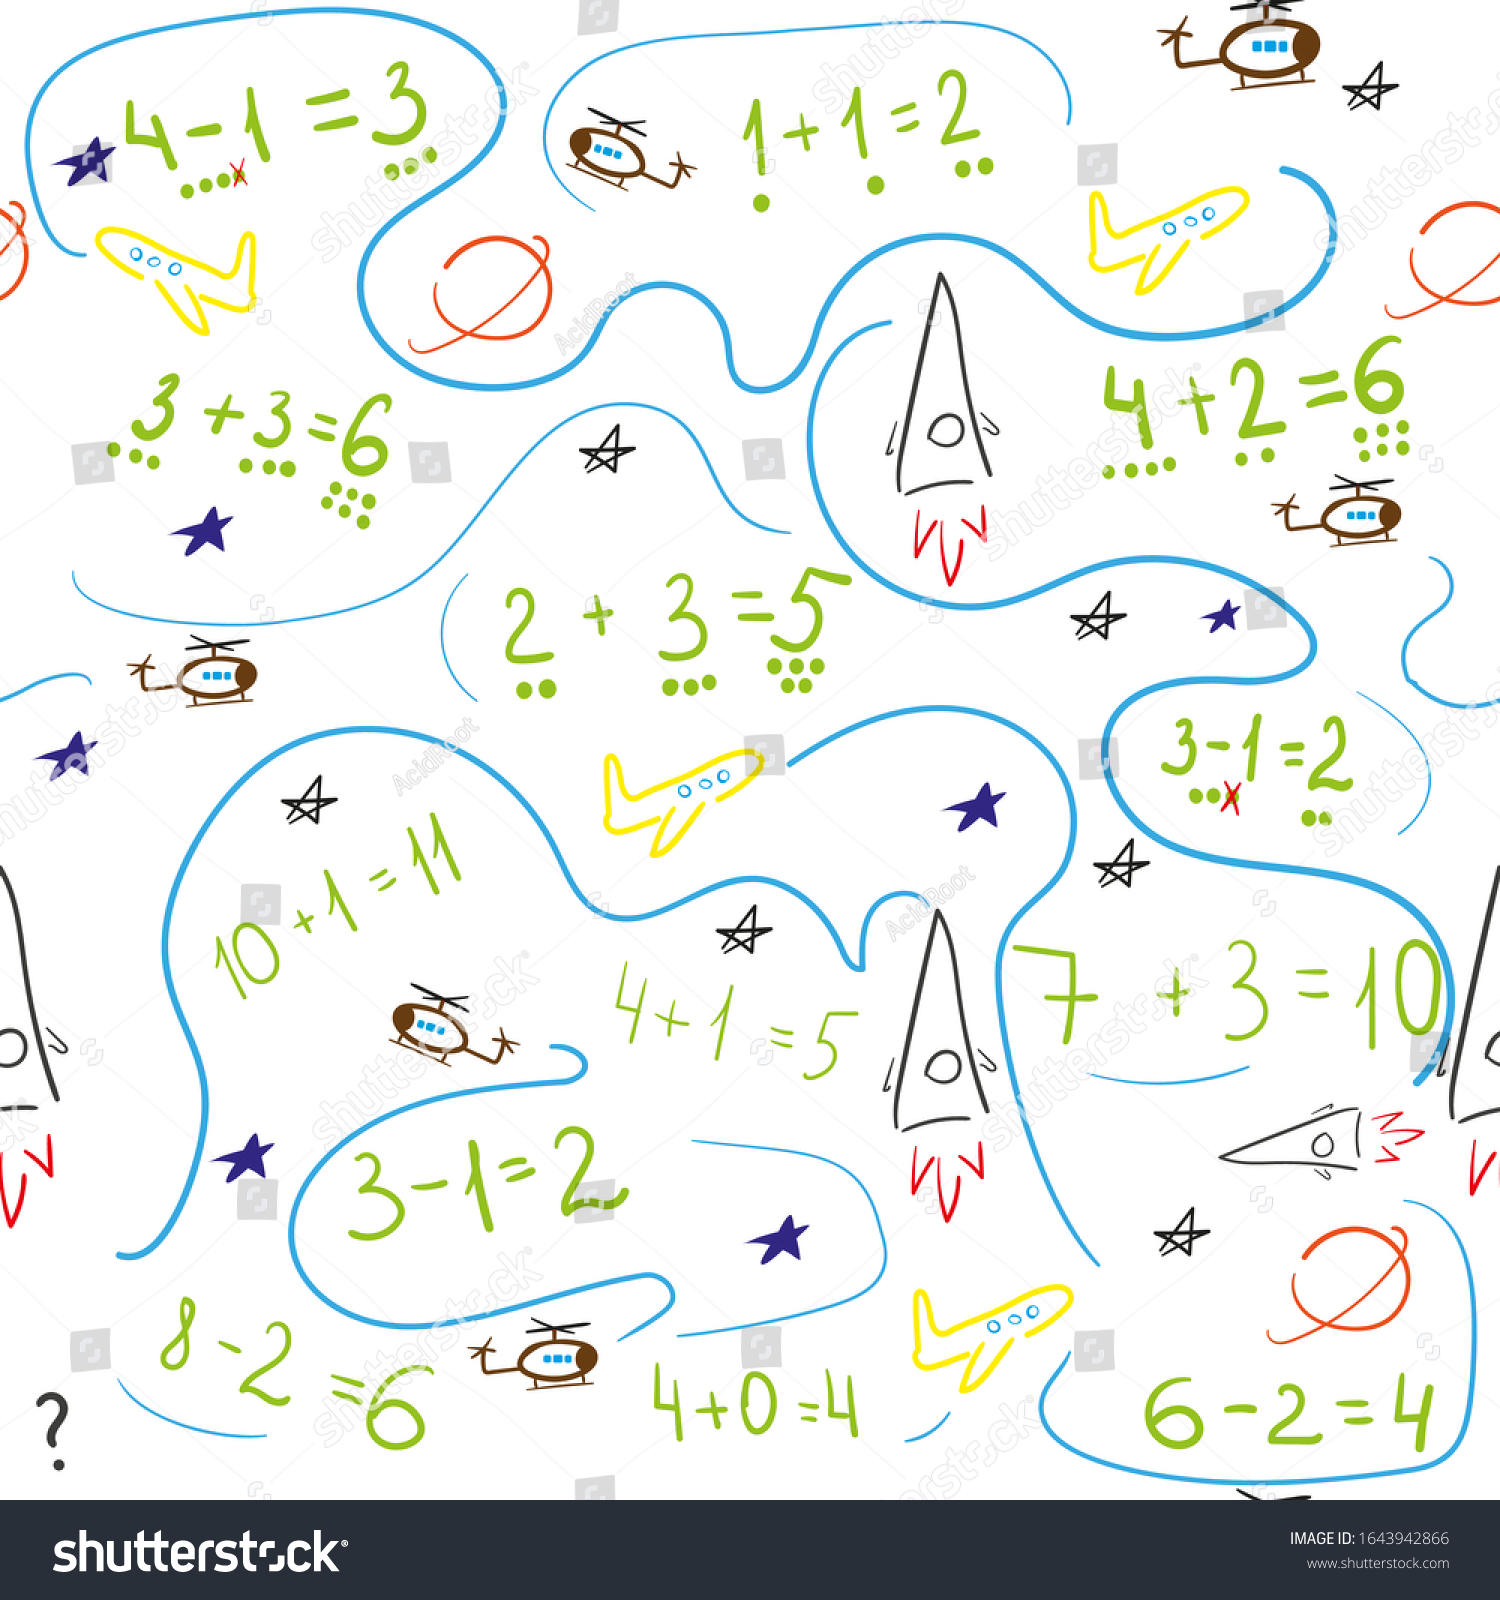 4-1=3
1+1=2
3+3=6
4+2=6
2+3=5
3-1=2
10+1=11
4+1=5
7+3=10
3-1=2
8-2=6
4+0=4
6-2=4
?
shutterstock
AcidRoot
shutterstock
IMAGE ID: 1643942866
www.shutterstock.com